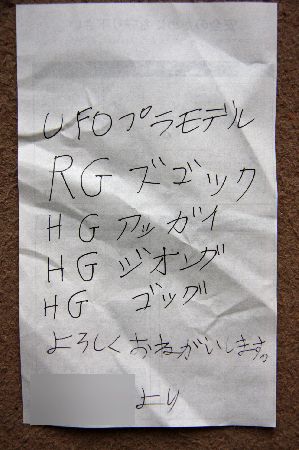 UFOプラモデル
RG ズゴック
HG アッガイ
HG ジオング
HG ゴッグ
よろしくおねがいします。
より